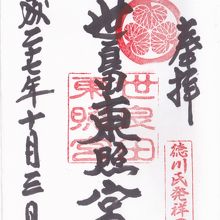 奉拝
徳川氏発祥
世良田東照宮
世良田
東照宮
平成二十七年十月三日